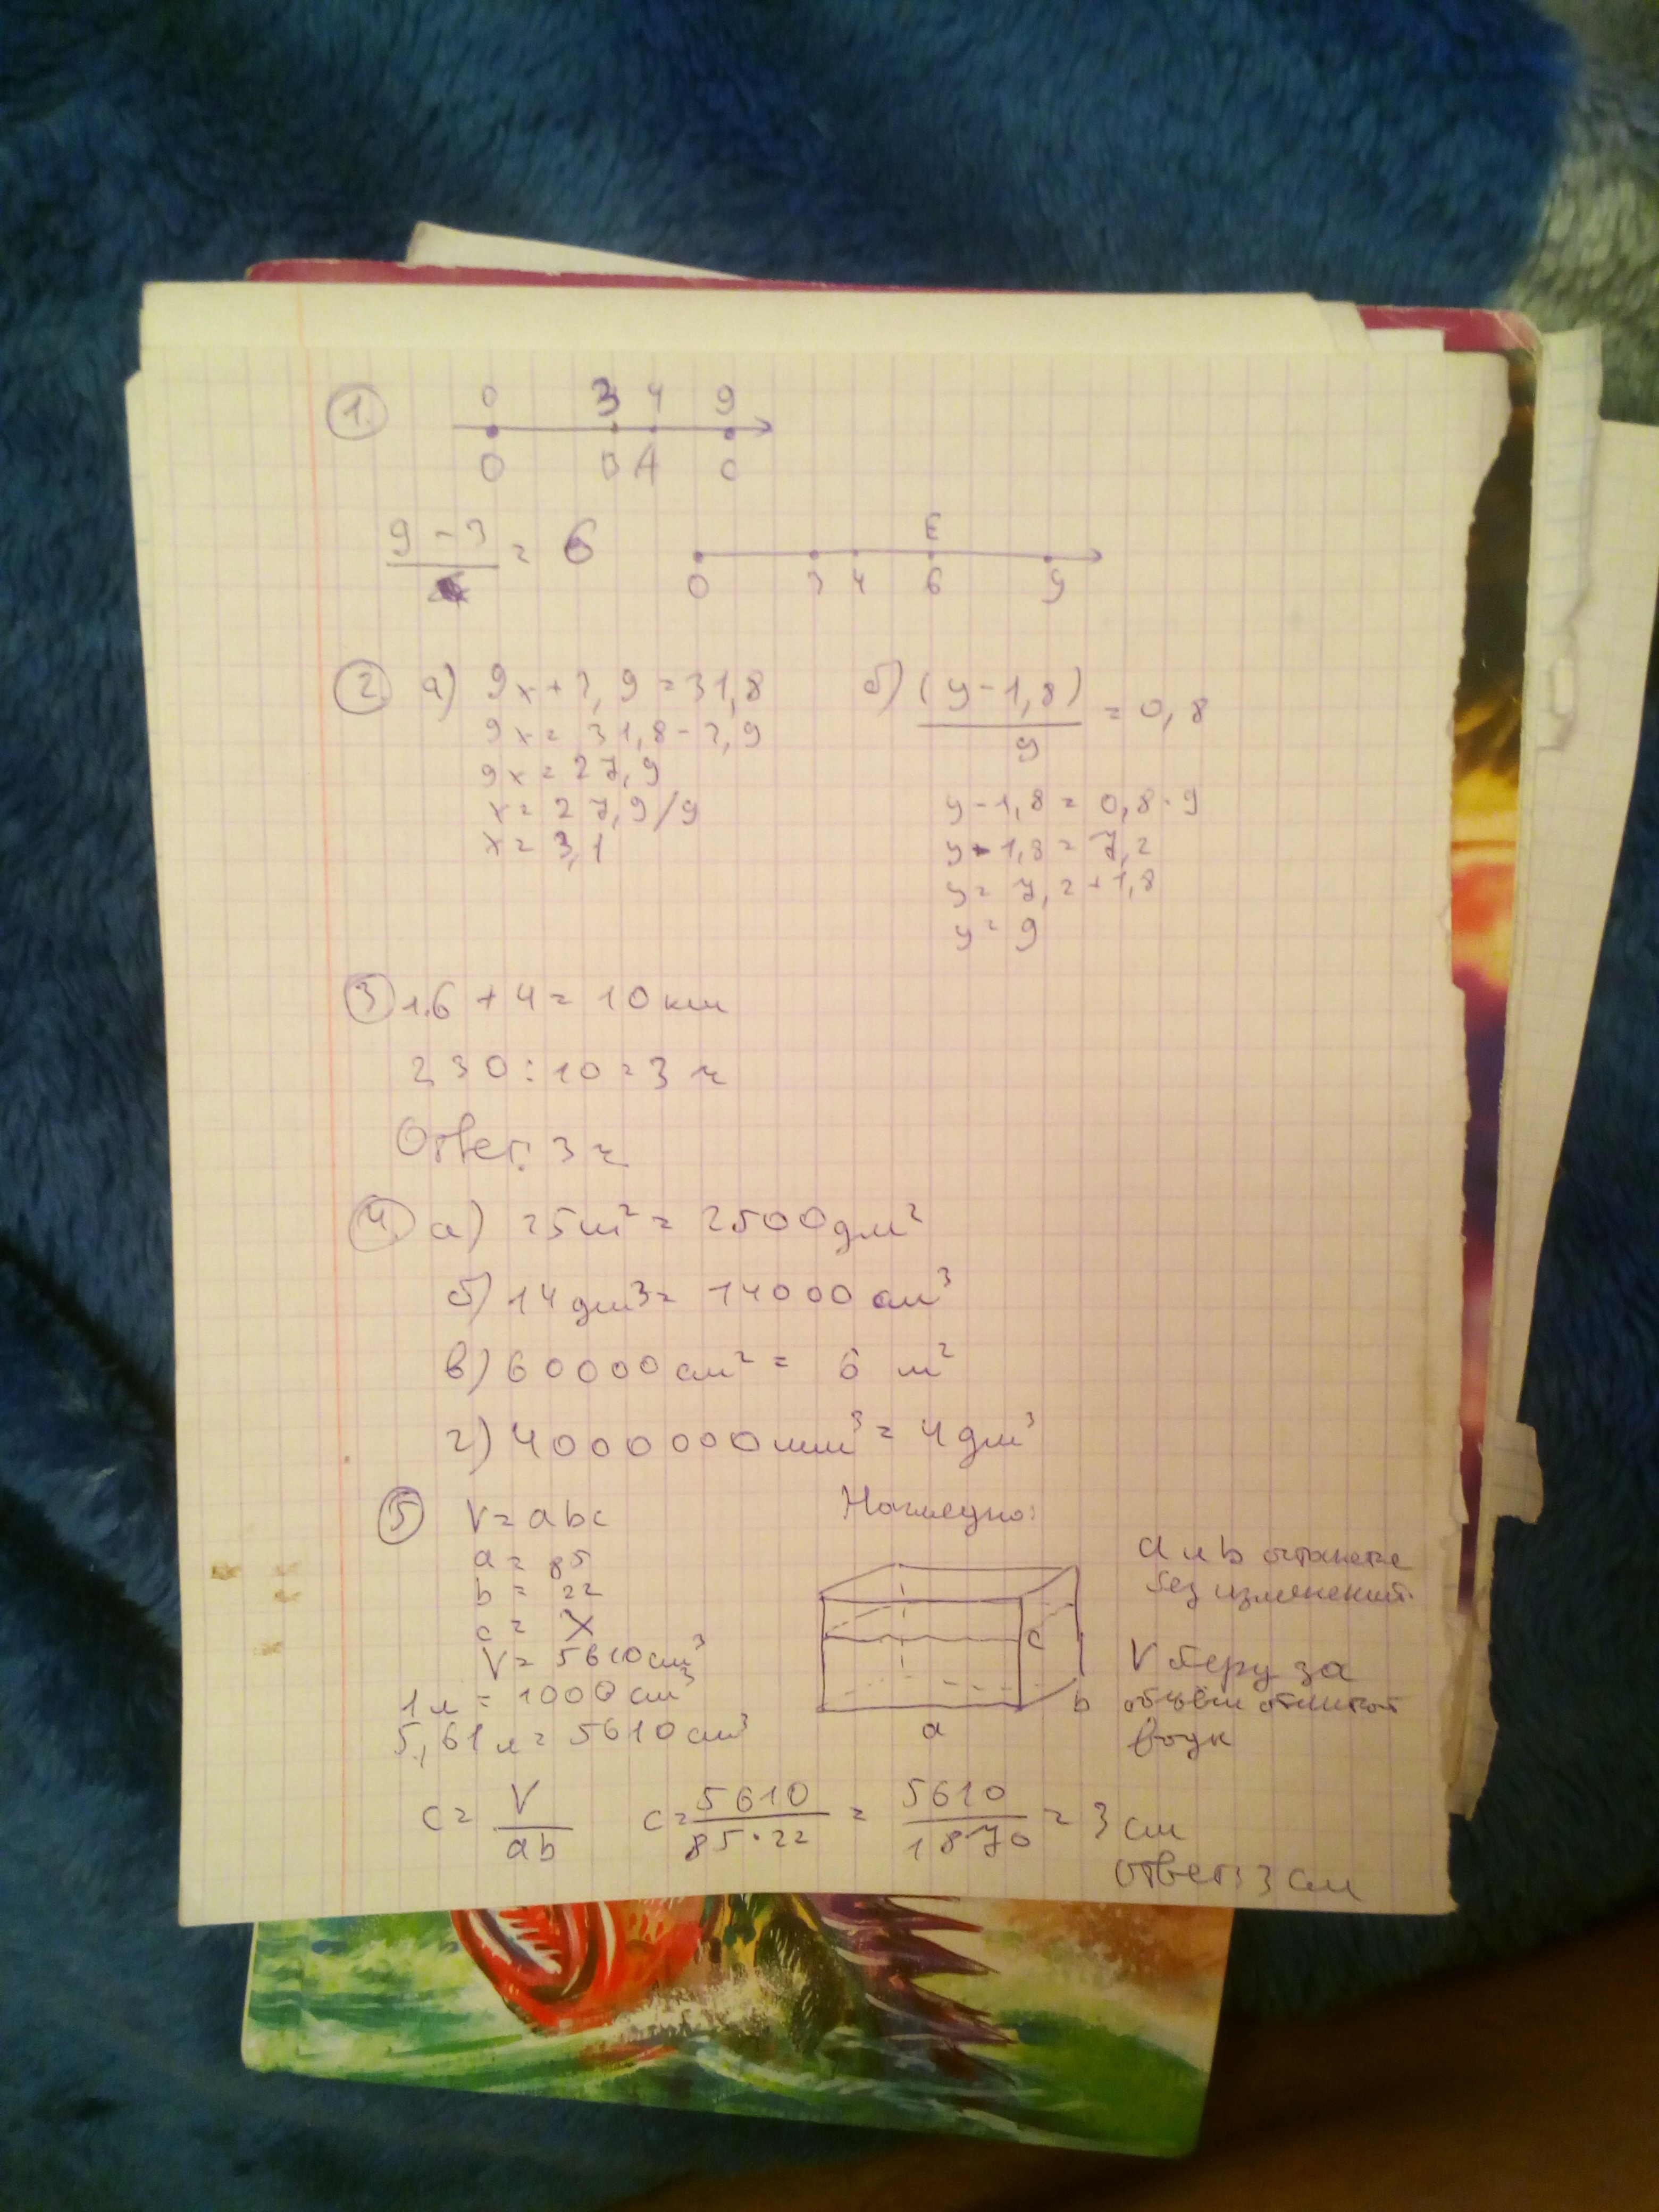 1.
0 3 4 9
O B A C
9 - 3 = 6
E
0 3 4 6 9
2. а) 9x + 3,9 = 31,8
9x = 31,8 - 3,9
9x = 27,9
x = 27,9/9
x = 3,1
б) (y - 1,8)
9
= 0,8
y - 1,8 = 0,8 · 9
y - 1,8 = 7,2
y = 7,2 + 1,8
y = 9
3 1. 6 + 4 = 10 км
2. 30 : 10 = 3 ч
Ответ: 3 ч
4. а) 25 м² = 2500 дм²
б) 14 дм³ = 14000 см³
в) 60000 см² = 6 м²
г) 4000000 мм³ = 4 дм³
5 V = abc
a = 85
b = 22
c = X
V = 5610 см³
1 л = 1000 см³
5,61 л = 5610 см³
Наглядно:
c
b
a
a и b остаются
без изменений.
V беру за
объём отлитой
воды
c = V/ab c = 5610/85·22 = 5610/1870 = 3 см
Ответ: 3 см